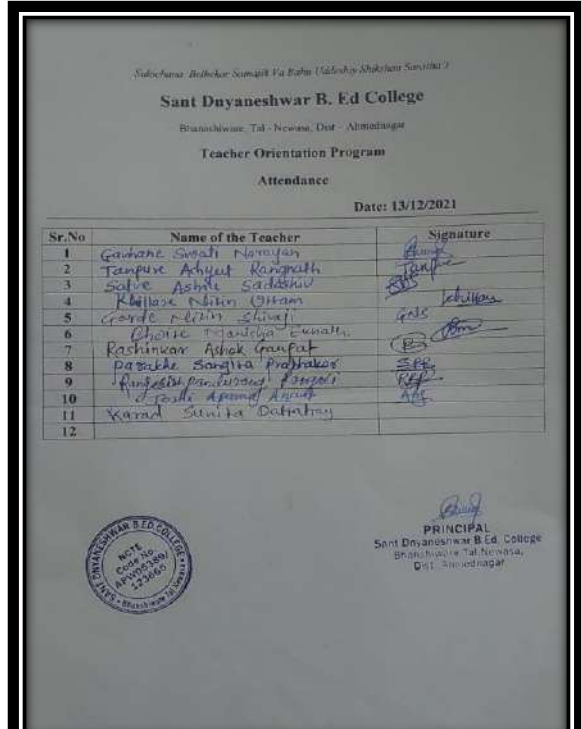 Sulochana Belhekar Samajik Va Bahu Uddeshiy Shikshan Sanstha's
Sant Dnyaneshwar B. Ed College
Bhanashiware, Tal - Newasa, Dist - Ahmednagar
Teacher Orientation Program
Attendance
Date: 13/12/2021
Sr.No Name of the Teacher Signature
1 Gavhane Swati Narayan
2 Tanpure Achyut Rangnath Tanpure
3 Salve Ashok Sadashiv
4 Khillare Nitin Uttam
5 Garde Nitin Shivaji GNS
6 Manisha Eknath
7 Rashinkar Ashok Ganpat
8 Parakhe Sangita Prabhakar SPP
9 Pandurang
10 Joshi Aparna Anant
11 Karad Sunita Dattatray
12
SANT DNYANESHWAR B.ED.COLLEGE
NCTE
Code No.
APW05389/
123660
PRINCIPAL
Sant Dnyaneshwar B.Ed. College
Bhanshiware Tal.Newasa,
Dist. Ahmednagar